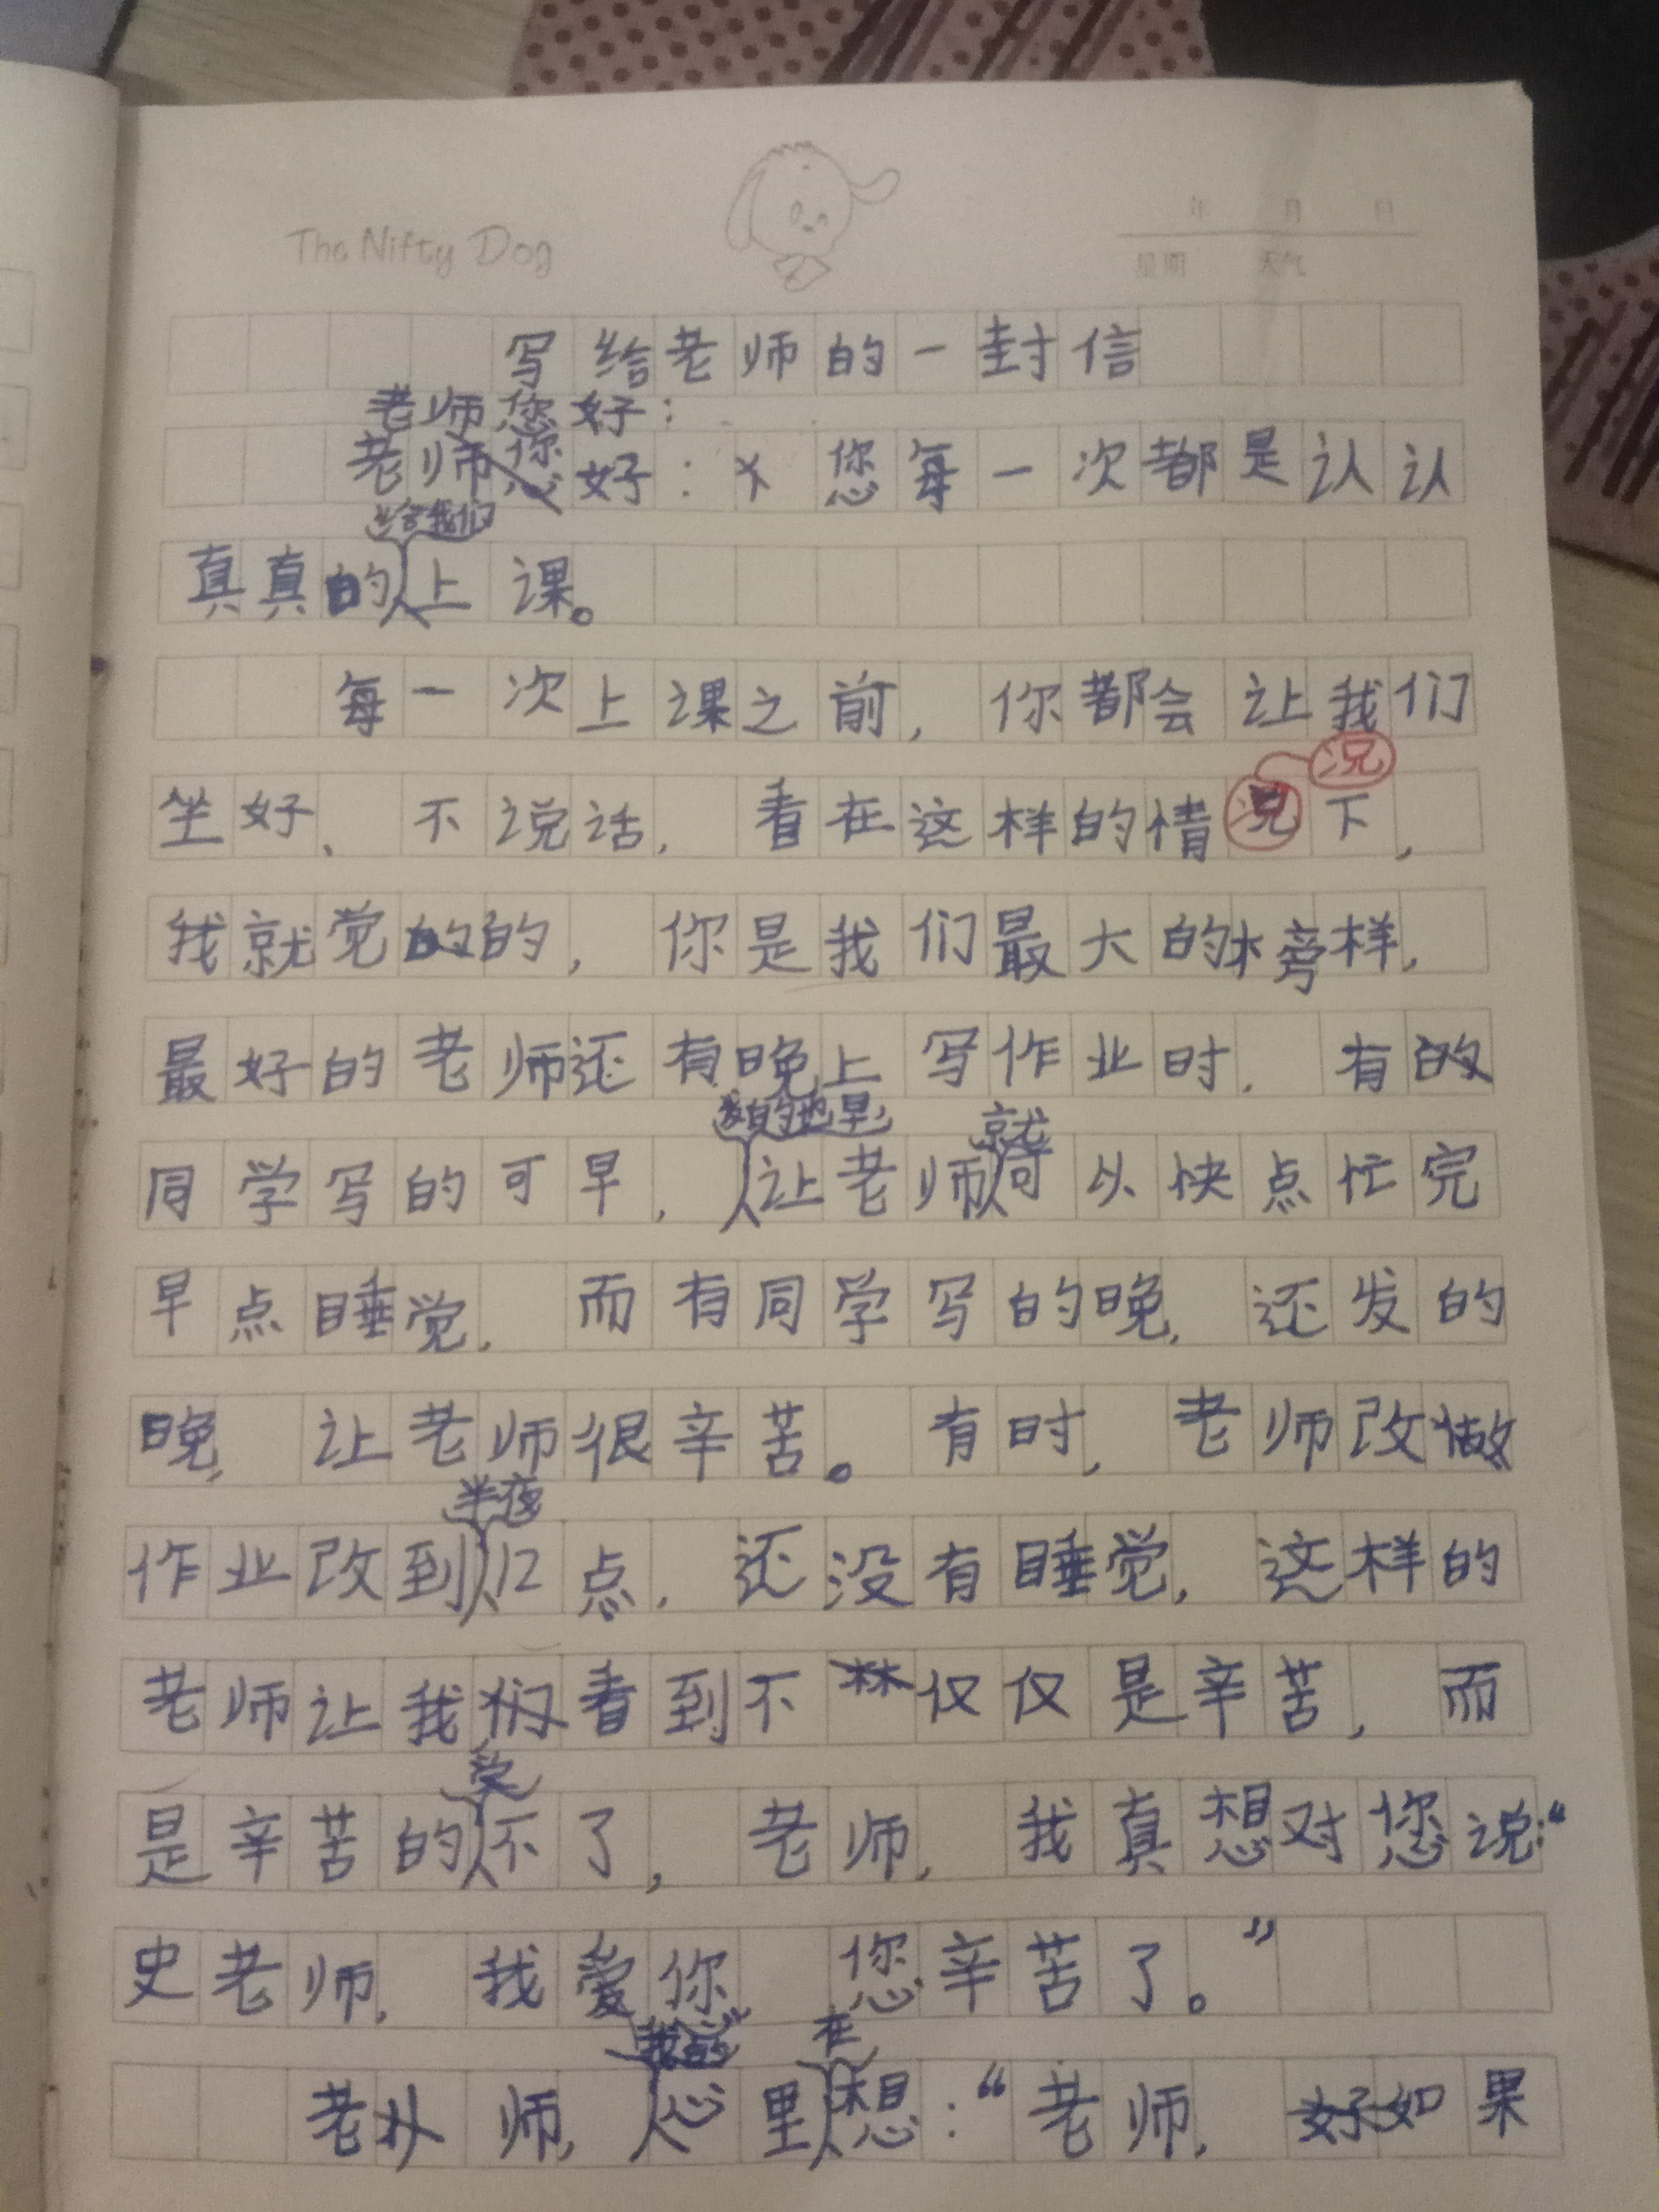 The Nifty Dog
年 月 日
星期 天气
写给老师的一封信
老师您好：
老师您好：您每一次都是认认
给我们
真真的上课。
每一次上课之前，你都会让我们
况
坐好、不说话，看在这样的情况下，
我就觉的的，你是我们最大的榜样，
最好的老师还有晚上写作业时，有的
发的也早，
就
同学写的可早，让老师可以快点忙完
早点睡觉，而有同学写的晚，还发的
晚，让老师很辛苦。有时，老师改做
半夜
作业改到12点，还没有睡觉，这样的
老师让我们看到不仅仅是辛苦，而
受
是辛苦的不了，老师，我真想对您说：“
史老师，我爱你 您辛苦了。”
我的 在
老师，心里想：“老师，如果